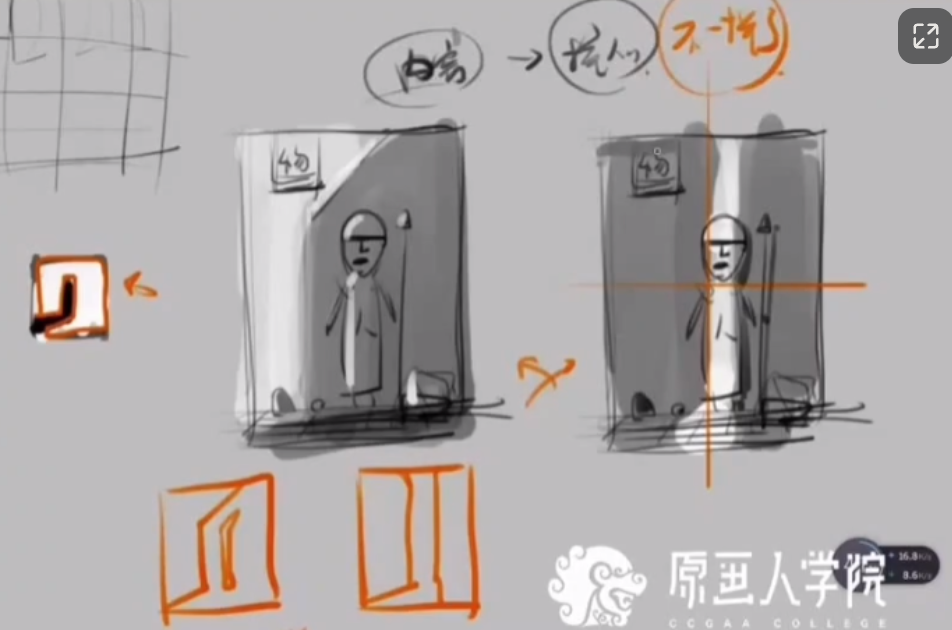 内容 → 找人 不一找了
物
物
原画人学院
CCGAA COLLEGE
16.8K/s
8.6K/s